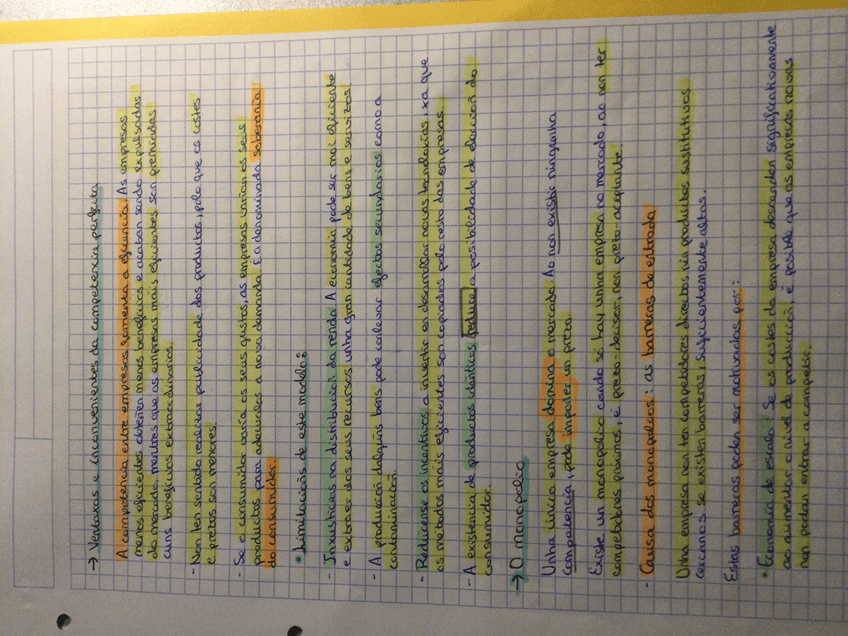 → Ventaxas e inconvenientes da competencia perfecta
A competencia entre empresas fomenta a eficiencia. As empresas
menos eficientes obteñen menos beneficios e acaban sendo expulsadas
do mercado, mentras que as empresas mais eficientes son premiadas
cuns beneficios extraordinarios.
- Non ten sentido realizar publicidade dos productos, polo que os costes
e prezos son menores.
- Se o consumidor varía os seus gustos, as empresas varían os seus
productos para adecualos a nova demanda. É a denominada soberanía
do consumidor.
• Limitacións de este modelo:
- Inxustizas na distribución da renda. A economía pode ser mais eficiente
e extraer dos seus recursos unha gran cantidade de bens e servizos.
- A producción dalgúns bens pode carlevar efectos secundarios como a
contaminación.
- Redúcense os incentivos a invertir en desarrollar novas tecnoloxías, xa que
os metodos máis eficientes son copiados polo resto das empresas.
- A existencia de productos idénticos reduce a posibilidade de elección do
consumidor.
→ O monopolio
Unha única empresa domina o mercado. Ao non existir ningunha
competencia, pode impoñer un prezo.
Existe un monopolio cando só hay unha empresa no mercado, ao non ter
competidores próximos, é prezo-decisor, non prezo-aceptante.
- Causa dos monopolios: as barreras de entrada
Unha empresa non ten competidores directos, nin productos sustitutivos
cercanos se existen barreras, suficientemente altas.
Estas barreras poden ser motivadas por:
• Economía de escala: Se os costes da empresa descenden significativamente
ao aumentar o nivel de producción, é posible que as empresas novas
non podan entrar a competir.